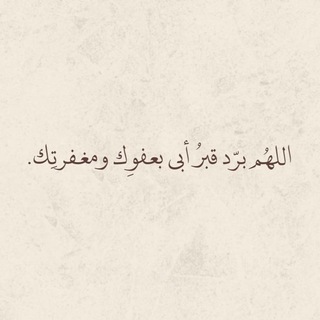 اللهُم برّد قبرُ أبى بعفوِك ومغفرتِك.